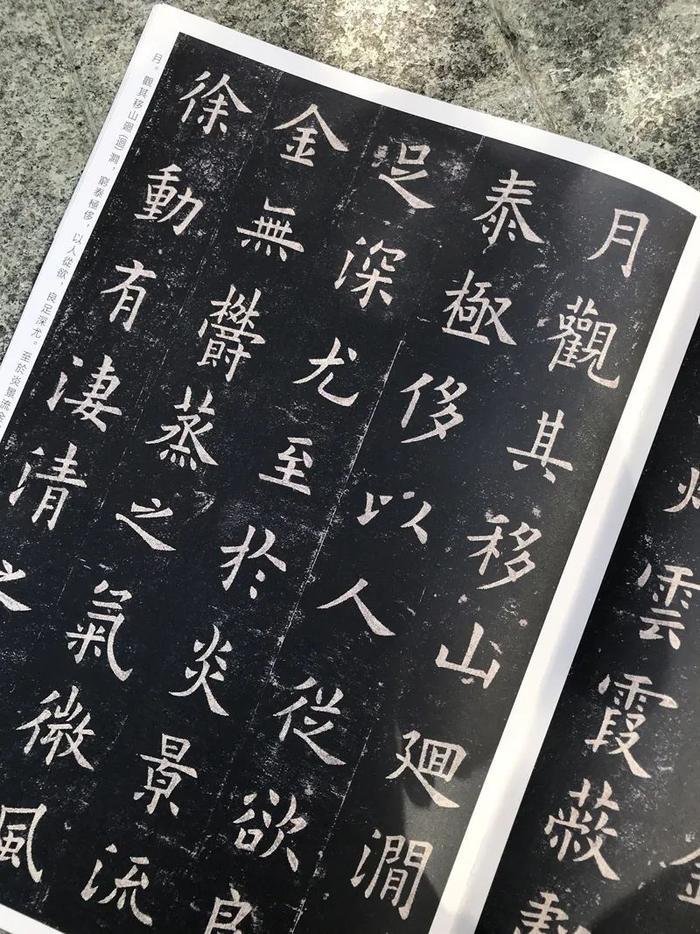 灼雲霞蔽虧
月觀其移山廻澗
泰極侈以人從欲良
足深尤至於炎景流
金無鬱蒸之氣微風
徐動有淒清之
月。觀其移山廻(迴)澗，窮泰極侈，以人從欲，良足深尤。至於炎景流金